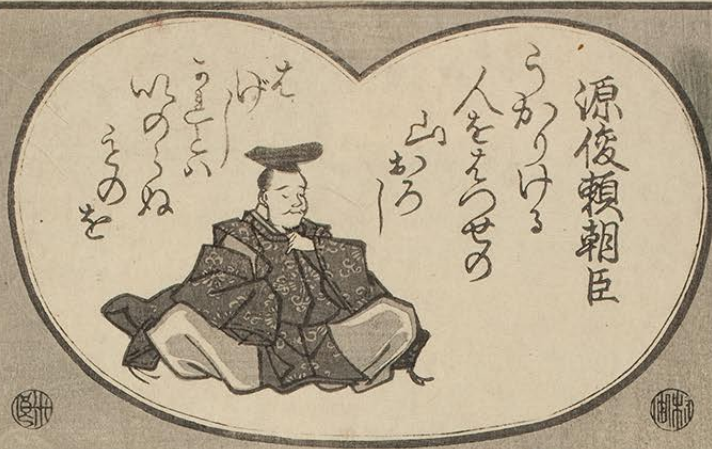 源俊頼朝臣
うかりける
人をはつせの
山おろし
はげし
かれとは
いのらぬ
ものを